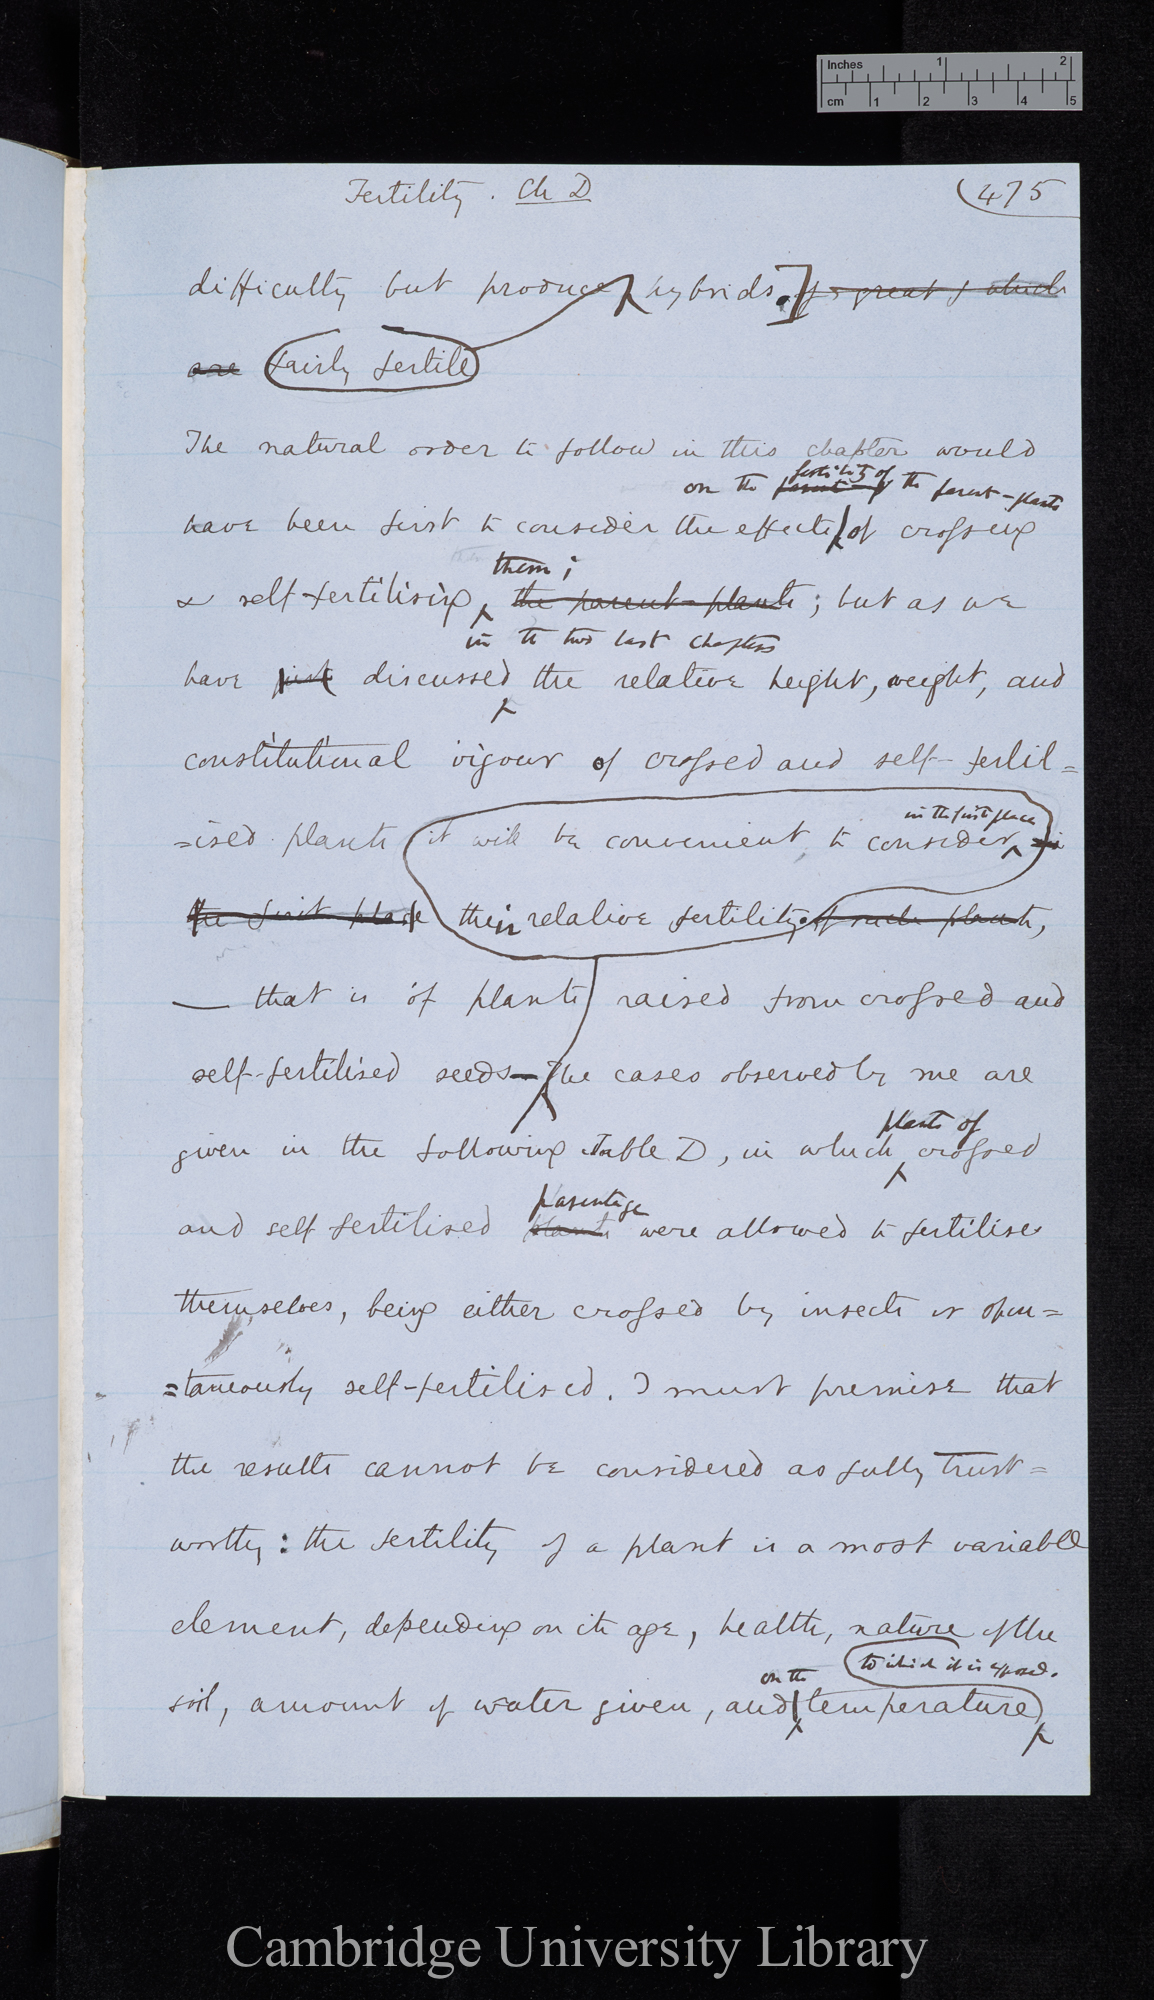 Inches 1 2
cm 1 2 3 4 5
Fertility. Ch D
(475
difficulty but produce hybrids.] great & which
are fairly fertile
The natural order to follow in this chapter would
fertility of
on the parent the parent-plants
have been first to consider the effects of crossing
them;
& self-fertilising, the parent-plants; but as we
in the two last chapters
have just discussed the relative height, weight, and
constitutional vigour of crossed and self-fertil=
in the first place
=ised plants it will be convenient to consider in
the first place their relative fertility of such plants,
— that is of plants raised from crossed and
self-fertilised seeds— The cases observed by me are
plants of
given in the following Table D, in which crossed
parentage
and self fertilised plants were allowed to fertilise
themselves, being either crossed by insects or spon=
=taneously self-fertilised. I must premise that
the results cannot be considered as fully trust=
worthy: the fertility of a plant is a most variable
element, depending on its age, health, nature of the
on the to which it is exposed.
soil, amount of water given, and temperature
Cambridge University Library